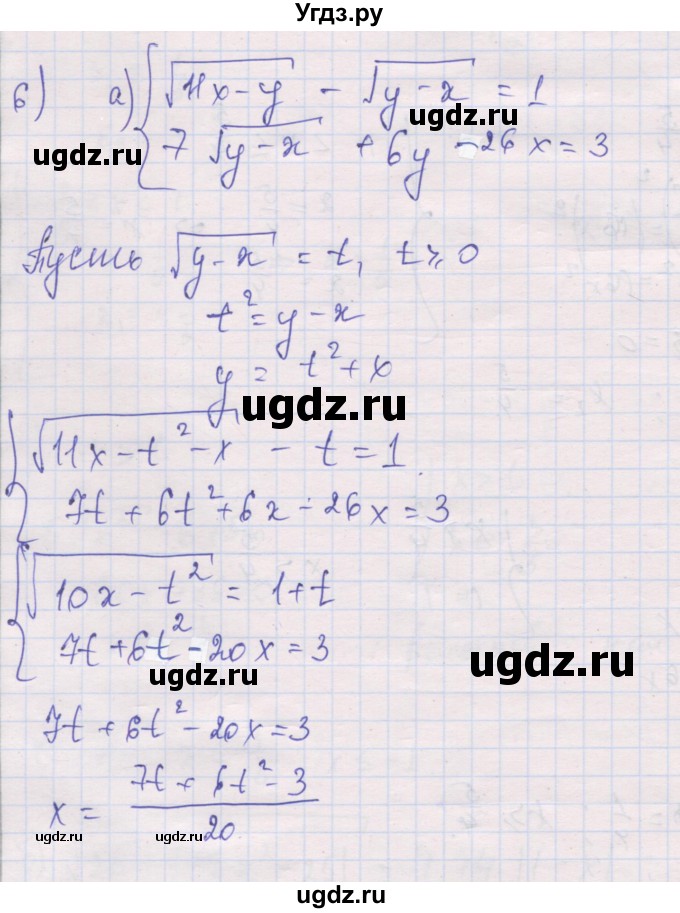 Угдз.ру
6) а) { √(11x-y) - √(y-x) = 1
7 √(y-x) + 6y - 26x = 3
ugdz.ru
ugdz.ru
ugdz.ru
Пусть √(y-x) = t, t ⩾ 0
t² = y-x
y = t² + x
ugdz.ru
{ √(11x - t² - x) - t = 1
7t + 6t² + 6x - 26x = 3
{ √(10x - t²) = 1+t
7t + 6t² - 20x = 3
ugdz.ru
ugdz.ru
7t + 6t² - 20x = 3
x = (7t + 6t² - 3)/20
ugdz.ru
ugdz.ru
ugdz.ru
ugdz.ru